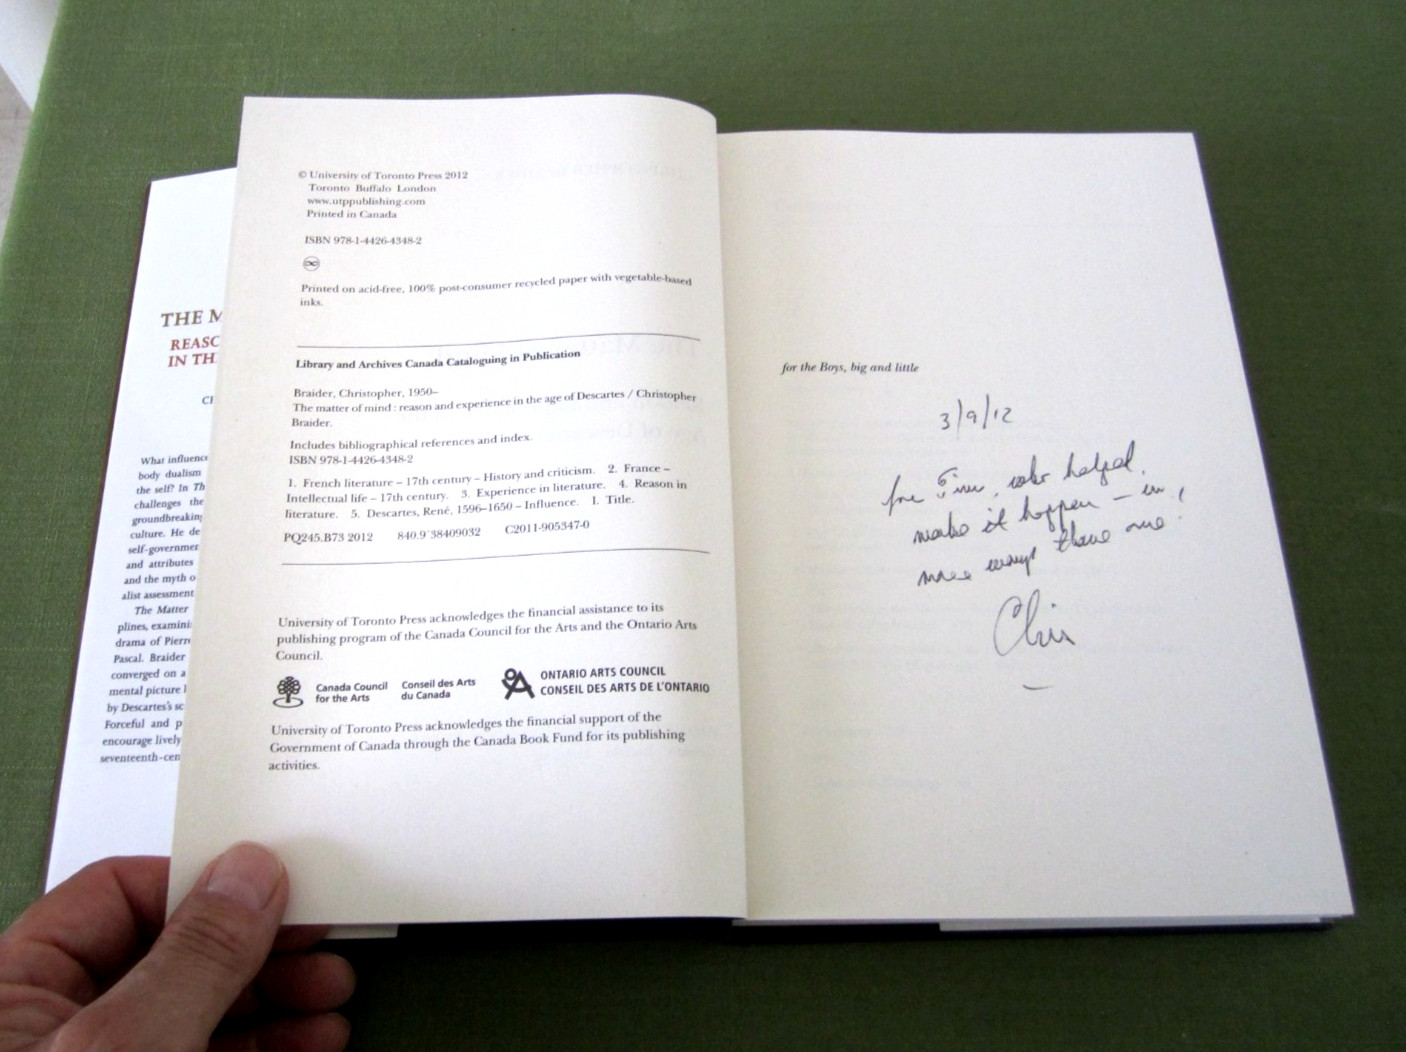 THE M
REASO
IN THE
CH
What influence
body dualism
the self? In Th
challenges the
groundbreaking
culture. He de
self-governmen
and attributes
and the myth o
alist assessment
The Matter
plines, examini
drama of Pierre
Pascal. Braider
converged on a
mental picture
by Descartes's sc
Forceful and p
encourage lively
seventeenth-cen
© University of Toronto Press 2012
Toronto Buffalo London
www.utppublishing.com
Printed in Canada
ISBN 978-1-4426-4348-2
Printed on acid-free, 100% post-consumer recycled paper with vegetable-based
inks.
Library and Archives Canada Cataloguing in Publication
Braider, Christopher, 1950–
The matter of mind : reason and experience in the age of Descartes / Christopher
Braider.
Includes bibliographical references and index.
ISBN 978-1-4426-4348-2
1. French literature – 17th century – History and criticism. 2. France –
Intellectual life – 17th century. 3. Experience in literature. 4. Reason in
literature. 5. Descartes, René, 1596–1650 – Influence. I. Title.
PQ245.B73 2012 840.9'38409032 C2011-905347-0
University of Toronto Press acknowledges the financial assistance to its
publishing program of the Canada Council for the Arts and the Ontario Arts
Council.
Canada Council Conseil des Arts
for the Arts du Canada
ONTARIO ARTS COUNCIL
CONSEIL DES ARTS DE L'ONTARIO
University of Toronto Press acknowledges the financial support of the
Government of Canada through the Canada Book Fund for its publishing
activities.
for the Boys, big and little
3/9/12
for Tim, who helped
make it happen – in
more ways than one!
Chris